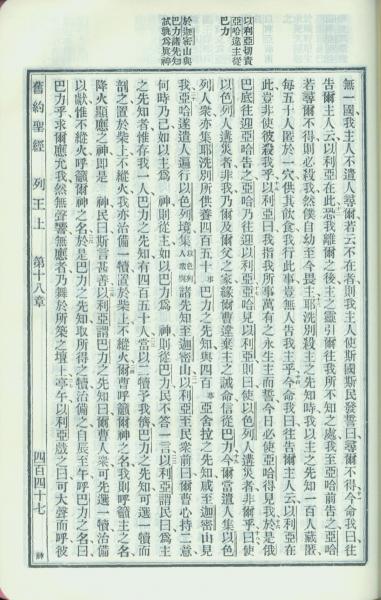 以利亞切責
亞哈違主從
巴力
於迦密山與
巴力諸先知
試孰為真神
無一國我主人不遣人尋爾若云不在者則我主人使斯國斯民發誓曰尋爾不得今命我曰往
告爾主人云以利亞在此恐我離爾之後主之靈引爾往我所不知之處我至亞哈前告之亞哈
若尋爾不得則必殺我然僕自幼至今畏主耶洗別殺主之先知時我以主之先知一百人藏匿
每五十人匿於一穴供其飲食我行此事豈無人告我主乎今命我曰往告爾主人云以利亞在
此豈非使彼殺我乎以利亞曰我指我所事萬有之永生主而誓今日必使亞哈得見我於是俄
巴底往迎亞哈告之亞哈乃往迎以利亞亞哈見以利亞則曰使以色列人遘災者非爾乎曰使
以色列人遘災者非我乃爾及爾父之家緣爾曹違棄主之誡命信從巴力今爾當遣人集以色
列人眾亦集耶洗別所供養四百五十事巴力之先知與四百事亞舍拉之先知咸至迦密山見
我亞哈遂遣人遍行以色列境集以色列人眾與諸先知至迦密山以利亞至民眾前曰爾曹心持二意
何時乃已如以主為神則從主如以巴力為神則從巴力民不答一言以利亞謂民曰為主
之先知者惟存我一人巴力之先知有四百五十人當以二犢予我儕巴力之先知可選一犢而
剖之置於柴上不縱火我亦治備一犢置於柴上不縱火爾曹呼籲爾神之名我則呼籲主之名
降火顯應之神即是神民曰斯言甚善以利亞謂巴力之先知曰爾曹人眾可先選一犢治備
以獻惟不縱火呼籲爾神之名於是巴力之先知取所得之犢治備之自辰至午呼巴力之名曰
巴力乎求爾應允我然無聲響無應者乃舞於所築之壇上亭午以利亞戲之曰可大聲而呼彼
舊約聖經 列王上 第十八章 四百四十七